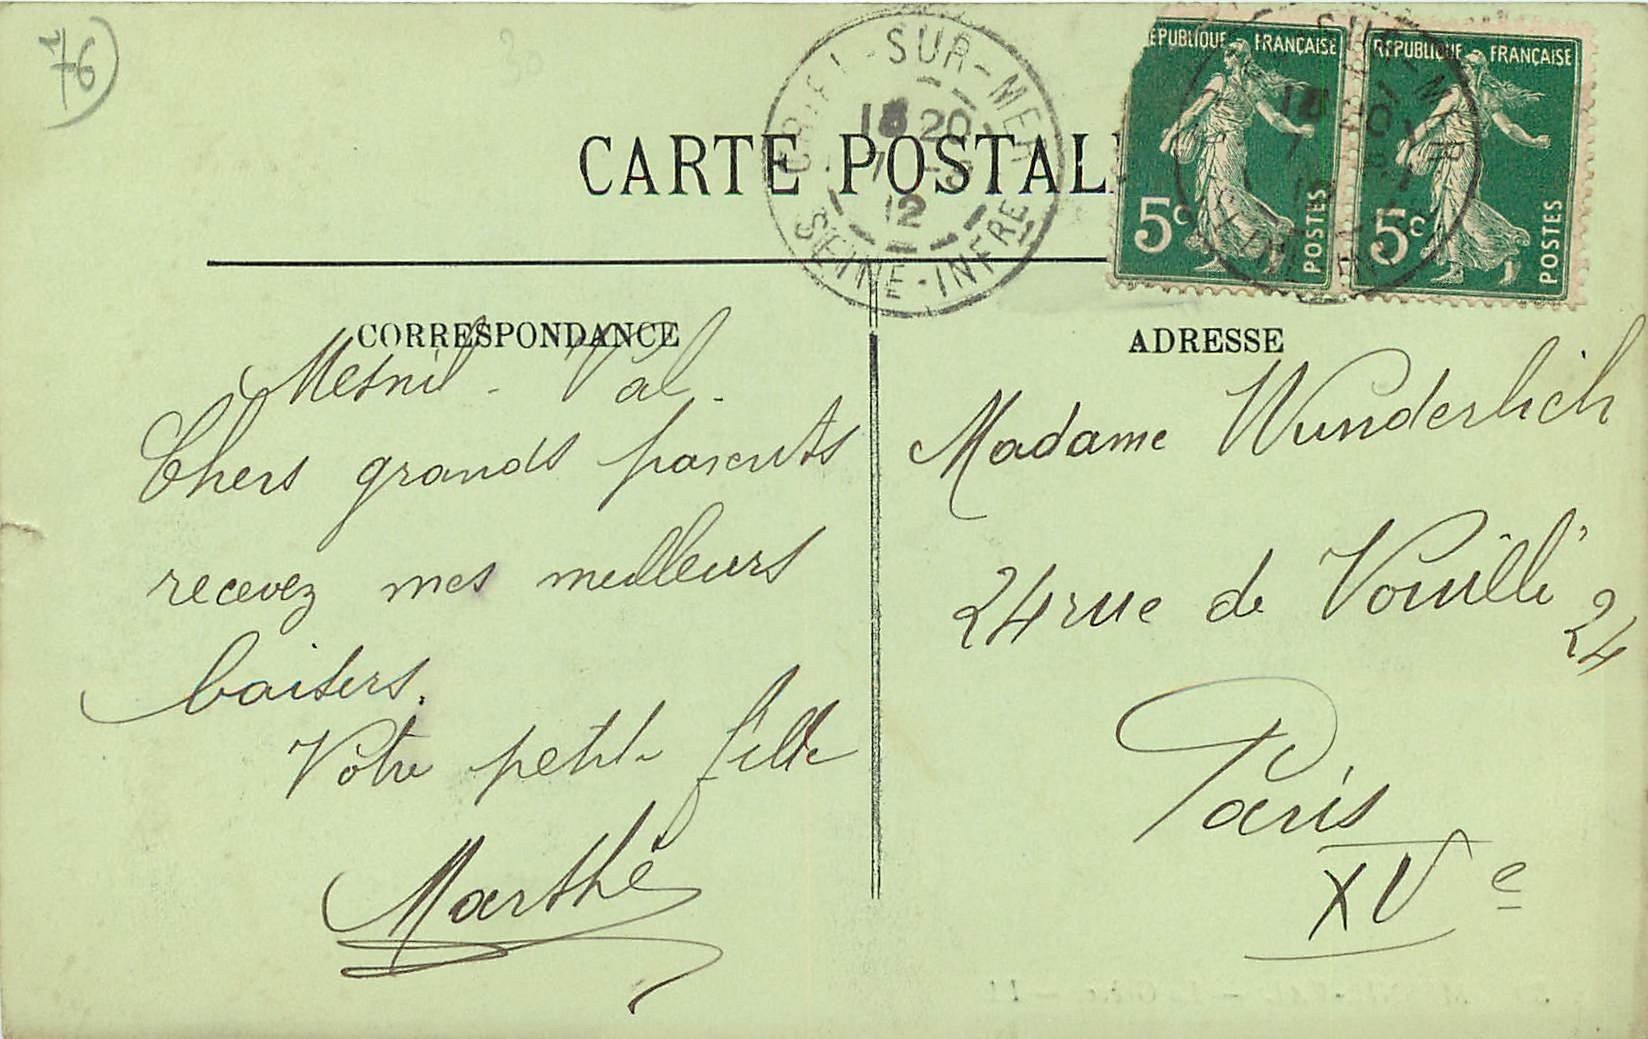 76
CRIEL-SUR-MER
18 20
7 - 8
12
SEINE-INFRE
RÉPUBLIQUE FRANÇAISE
5c
POSTES
RÉPUBLIQUE FRANÇAISE
5c
POSTES
CARTE POSTALE
CORRESPONDANCE
Mesnil-Val.
Chers grands parents
recevez mes meilleurs
baisers.
Votre petite fille
Marthe
ADRESSE
Madame Wunderlich
24 rue de Vouillé 24
Paris
XVe